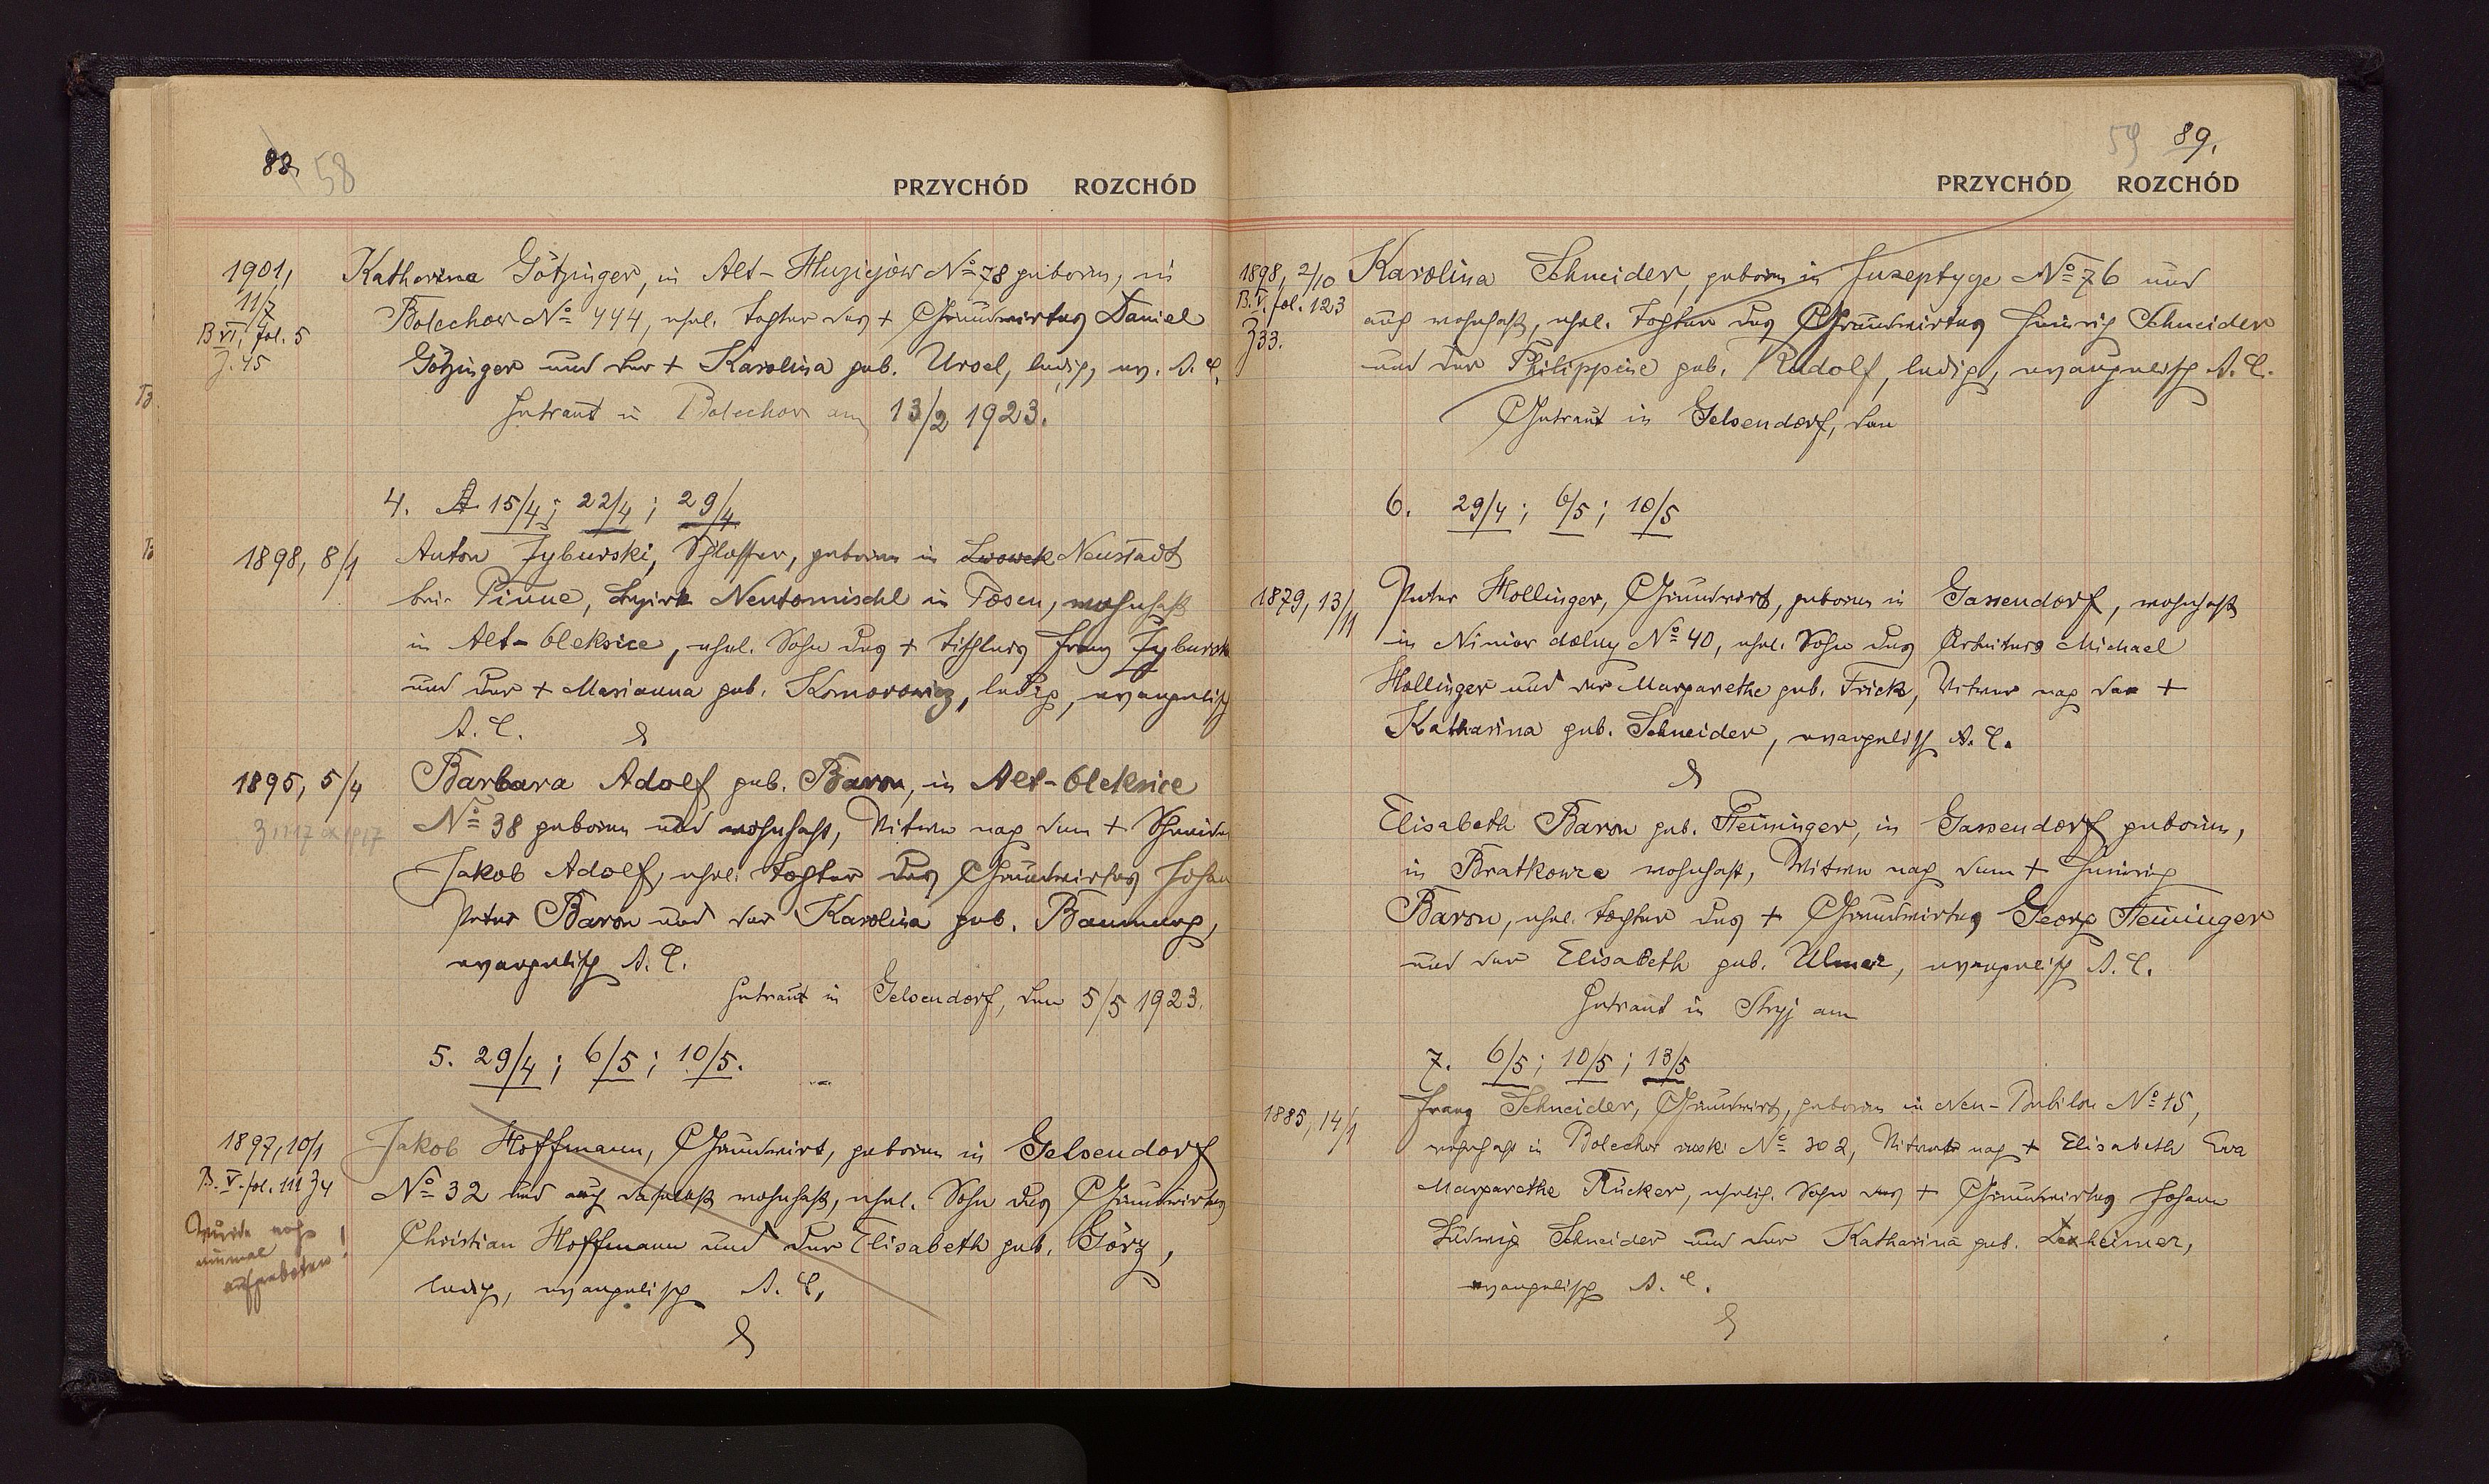 88. 58
PRZYCHÓD ROZCHÓD
1901,
11/7
B VI, fol. 5
Z. 45
Katharina Götzinger, in Alt-Mizicjow No 78 geboren, in
Bolechow No 444, ehel. Tochter des + Grundwirtes Daniel
Götzinger und der + Karolina geb. Ursel, ledig, ev. A. C.
Getraut in Bolechow am 13/2 1923.
4. 15/4; 22/4; 29/4
1898, 8/1
Anton Zyburski, Schlosser, geboren in Lwowek Neustadt
bei Pinne, Bezirk Neutomischl in Posen, wohnhaft
in Alt-Oleksice, ehel. Sohn des + Tischlers Franz Zybursk
und der + Marianna geb. Komorowicz, ledig, evangelisch
A. C.
&
1895, 5/4
Barbara Adolf geb. Baron, in Alt-Oleksice
No 38 geboren und wohnhaft, Witwe nach dem + Schneider
Jakob Adolf, ehel. Tochter des Grundwirtes Johan
Peter Baron und der Karolina geb. Baumung,
evangelisch A. C.
Getraut in Gelsendorf, den 5/5 1923.
5. 29/4; 6/5; 10/5.
1897, 10/1
B. V. fol. 111 Z 4
wurde noch
einmal
aufgeboten!
Jakob Hoffmann, Grundwirt, geboren in Gelsendorf
No 32 und auch daselbst wohnhaft, ehel. Sohn des Grundwirtes
Christian Hoffmann und der Elisabeth geb. Görz,
ledig, evangelisch A. C.
&
59 89.
PRZYCHÓD ROZCHÓD
1898, 2/10
B. V. fol. 123
Z 33.
Karolina Schneider, geboren in Juzeptyge No 76 und
auch wohnhaft, ehel. Tochter des Grundwirtes Heinrich Schneider
und der Philippine geb. Rudolf, ledig, evangelisch A. C.
Getraut in Gelsendorf, den
6. 29/4; 6/5; 10/5
1879, 13/11
Peter Hollinger, Grundwirt, geboren in Gassendorf, wohnhaft
in Niniow dolny No 40, ehel. Sohn des Arbeiters Michael
Hollinger und der Margarethe geb. Frick, Witwer nach der +
Katharina geb. Schneider, evangelisch A. C.
&
Elisabeth Baron geb. Heininger, in Gassendorf geboren,
in Bratkowce wohnhaft, Witwe nach dem + Heinrich
Baron, ehel. Tochter des + Grundwirtes Georg Heininger
und der Elisabeth geb. Ulmer, evangelisch A. C.
Getraut in Stryj am
7. 6/5; 10/5; 13/5
1885, 14/1
Franz Schneider, Grundwirt, geboren in Neu-Babilon No 15,
wohnhaft in Bolechow ruski No 302, Witwer nach + Elisabeth Eva
Margarethe Rücker, ehelich. Sohn des + Grundwirtes Johann
Ludwig Schneider und der Katharina geb. Dexheimer,
evangelisch A. C.
&